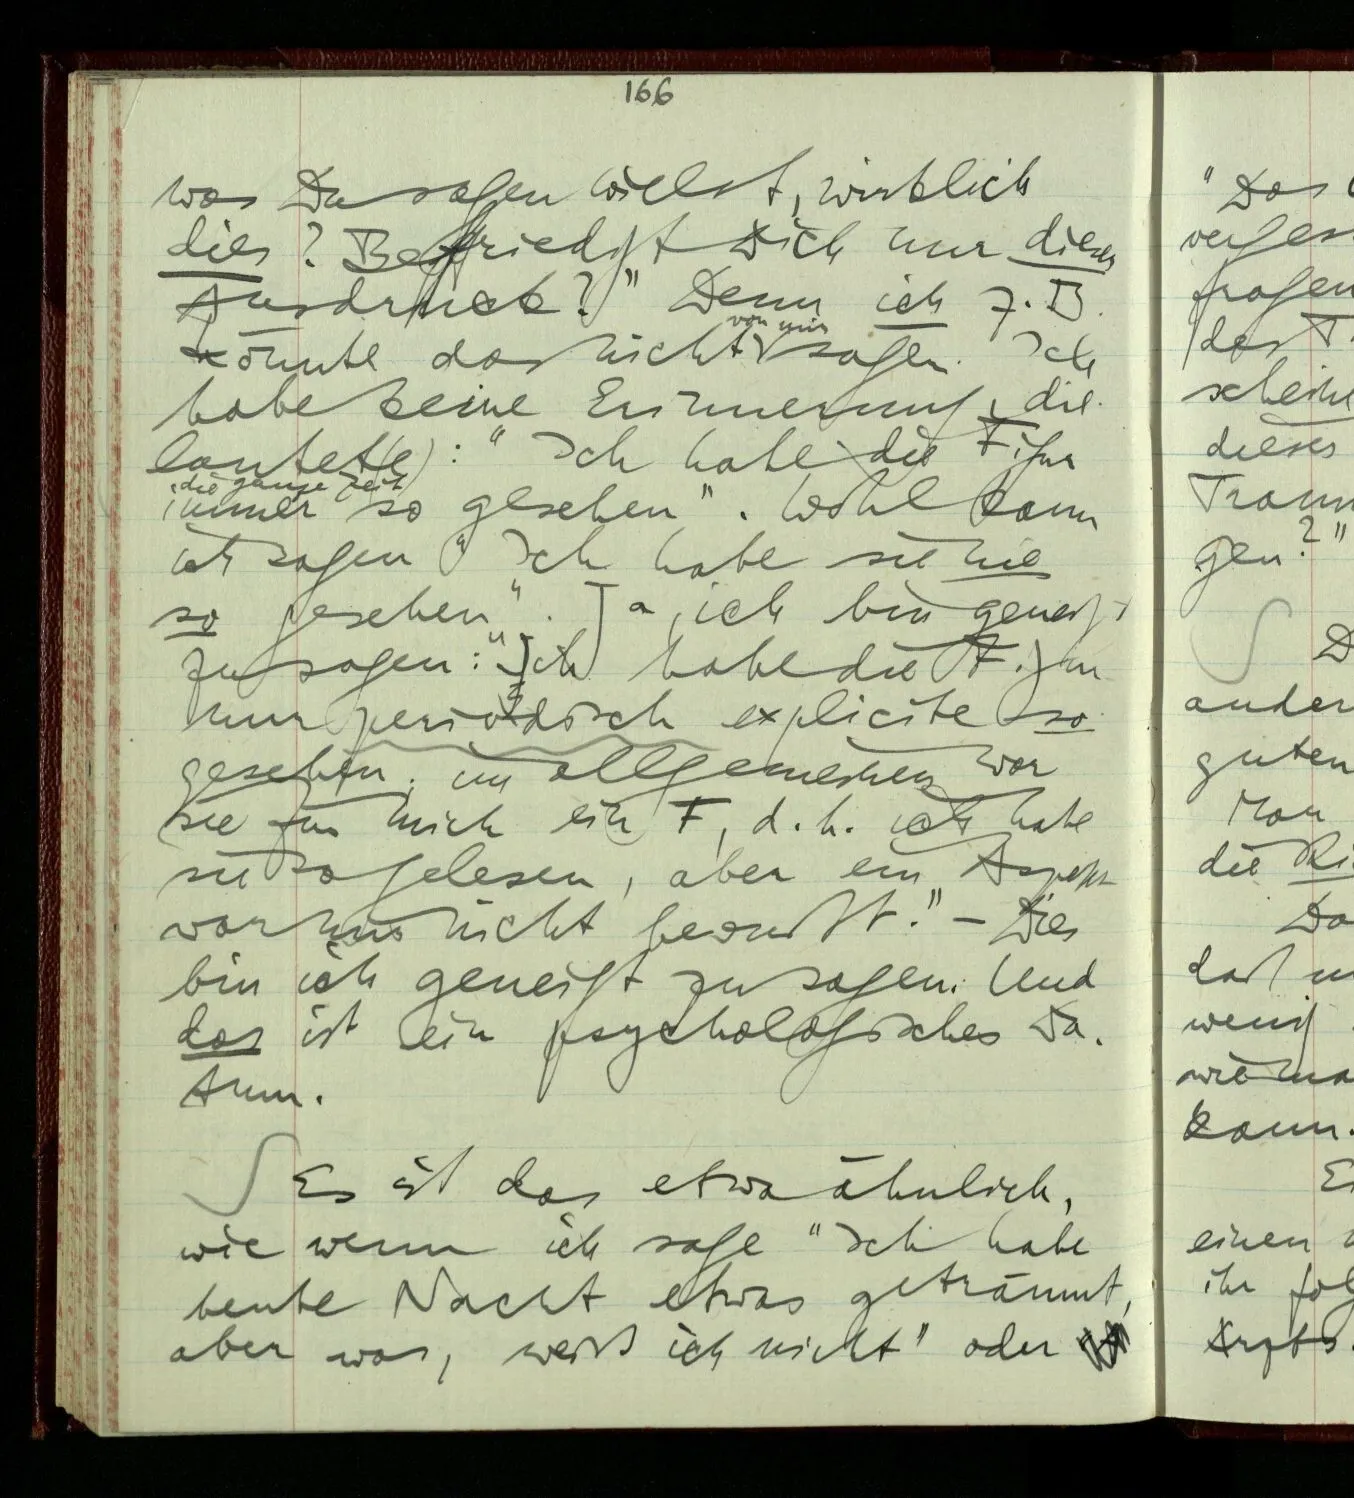 166
was Du sagen willst, wirklich
dies? Befriedigt Dich nur dieser
Ausdruck?" Denn ich z.B.
könnte das nicht von mir sagen. Ich
habe keine Erinnerung, die
lautet(e): "Ich habe die Figur
die ganze Zeit
immer so gesehen". Wohl kann
ich sagen "Ich habe sie nie
so gesehen". Ja, ich bin geneigt
zu sagen: "Ich habe die Figur
nur periodisch explicite so
gesehen; im allgemeinen war
sie für mich ein F, d.h. ich habe
sie so gelesen, aber ein Aspekt
war mir nicht bewußt." – Dies
bin ich geneigt zu sagen. Und
das ist ein psychologisches Da-
tum.
Es ist das etwa ähnlich,
wie wenn ich sage "Ich habe
heute Nacht etwas geträumt,
aber was, weiß ich nicht" oder
"Das
fragen
des
dieses
gen?"
D
andern
guten
Man
die
Da
wenig
wie
kann.
einen
ihr